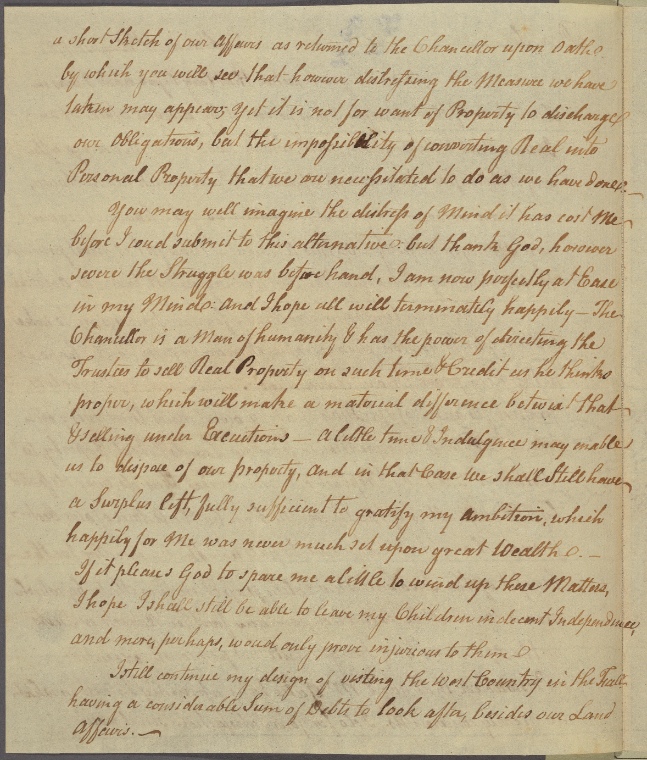 a short Sketch of our affairs as returned to the Chancellor upon Oath
by which you will see that however distressing the Measure we have
taken may appear, yet it is not for want of Property to discharge
our Obligations, but the impossibility of converting Real into
Personal Property that we are necessitated to do as we have done.
You may well imagine the distress of Mind it has cost Me
before I coud submit to this alternative: but thank God, however
severe the Struggle was before hand, I am now perfectly at Ease
in my Mind: and I hope all will terminately happily – The
Chancellor is a Man of humanity & has the power of directing the
Trustees to sell Real Property on such time & Credit as he thinks
proper, which will make a material difference betwixt that
& selling under Executions – a little time & Indulgence may enable
us to dispose of our property, and in that Case we shall Still have
a Surplus left, fully sufficient to gratify my ambition, which
happily for Me was never much set upon great Wealth. –
If it pleases God to spare me a little to wind up these Matters,
I hope I shall still be able to leave my Children in decent Independence,
and more, perhaps, woud only prove injurious to them
I still continue my design of visiting the West Country in the Fall
having a considerable Sum of Debts to look after, besides our Land
Affairs. –